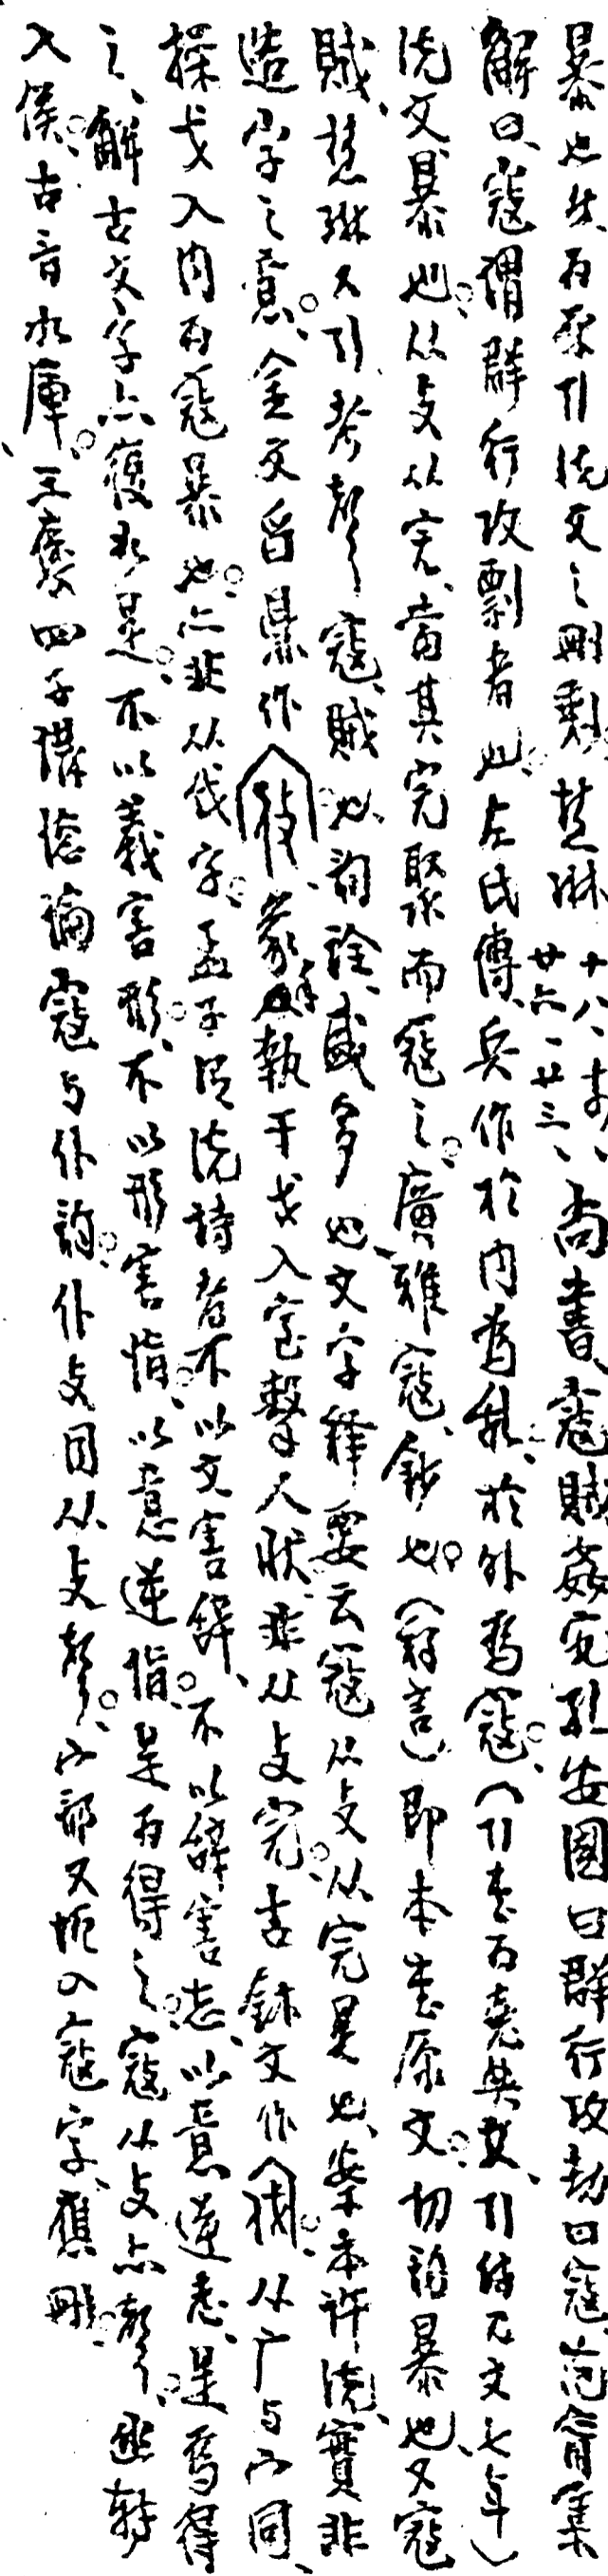 暴也。故召來引說文之刪剩。慧琳十八、廿六一、廿三、尚書、寇賊姦宄、孔安國曰群行攻劫曰寇。范甯集
解曰、寇謂群行攻剽者也。左氏傳、兵作於內爲亂、於外爲寇。（引書爲堯典文、引傳乃文七年）
說文暴也。从攴从完、當其完聚而寇之。廣雅寇、鈔也。（釋言）即本書原文。切韵暴也、又寇
賊、慧琳又引考聲寇、賊也、韵詮、盛多也、文字釋要云寇从攴从完是也、案本許說、實非
造字之意。金文曶鼎作、象人執干戈入室擊人狀、非从攴完。古鉥文作、从广与宀同、
操戈入內爲寇暴也。亦非从伐字。孟子曰說詩者不以文害辭、不以辭害志、以意逆志、是爲得
之、解古文字亦復如是。不以義害形、不以形害恉、以意逆恉。是爲得之。寇从攴亦聲。匧轉
入侯、古音如庫。王褒四子講德論寇与仆韵。仆攴同从攴聲。宀部又垢入寇字、應刪。